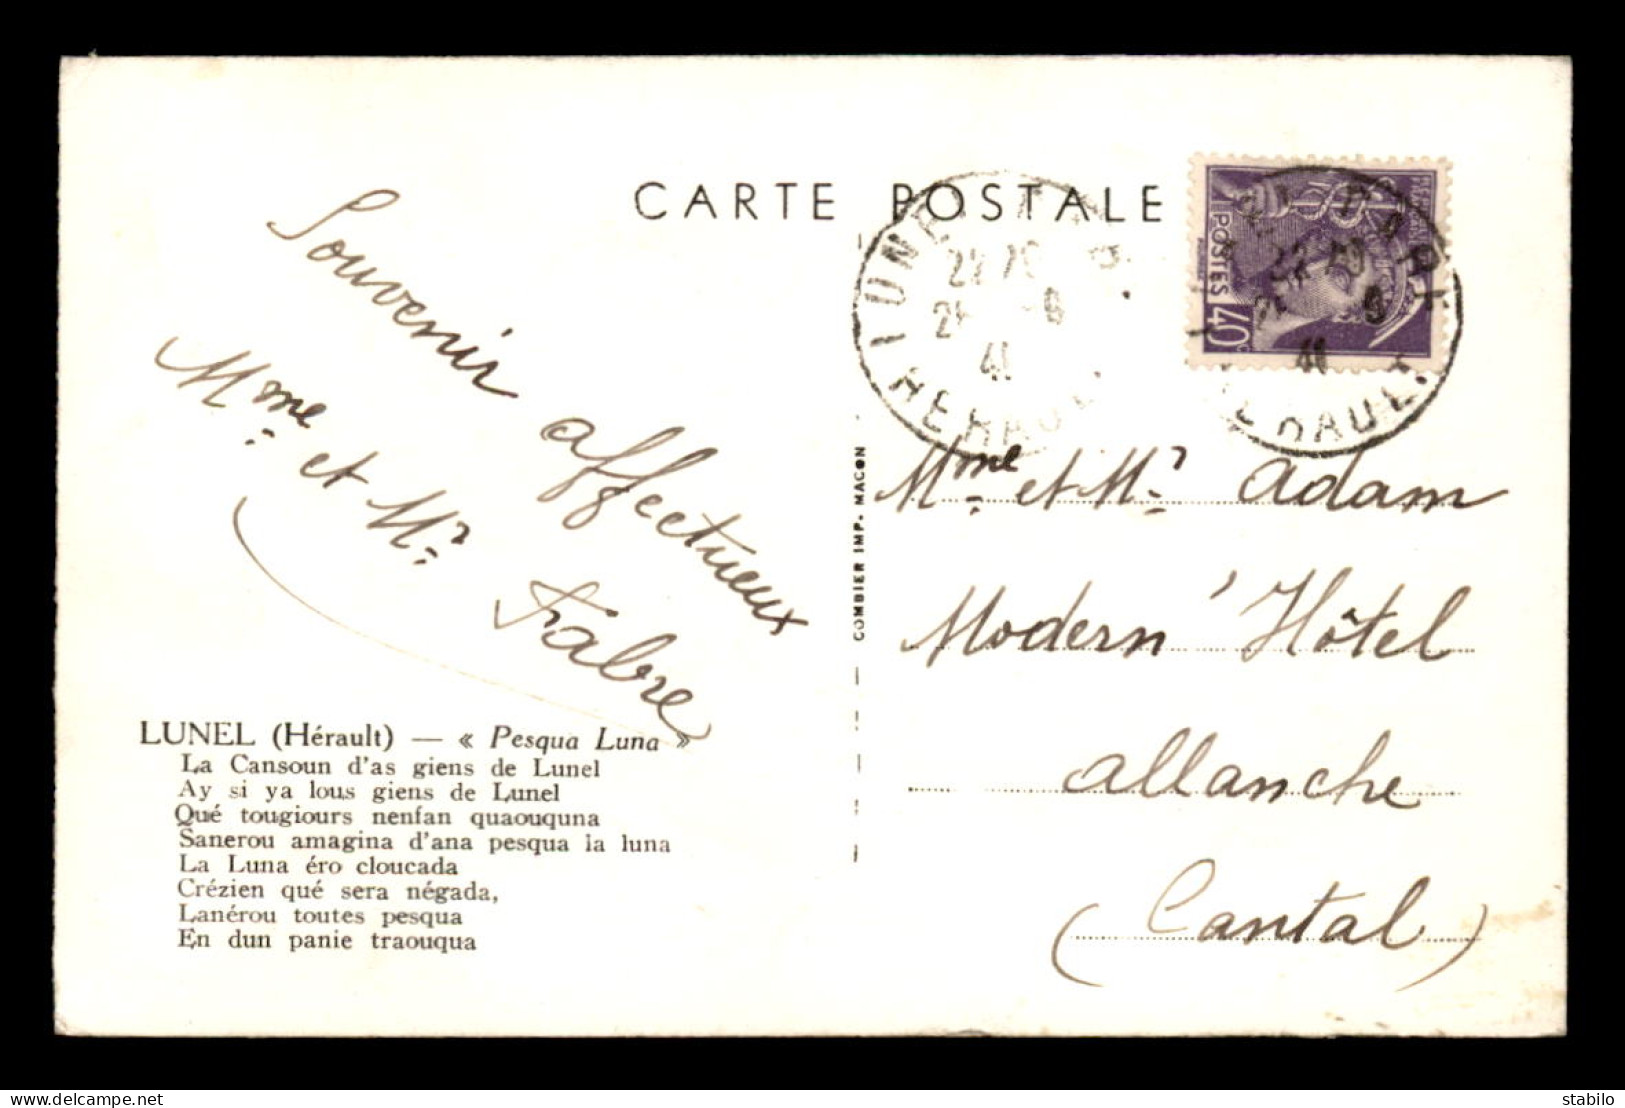 CARTE POSTALE
Souvenir affectueux
Mme et Mr
Fabre
LUNEL (Hérault) — « Pesqua Luna »
La Cansoun d'as giens de Lunel
Ay si ya lous giens de Lunel
Qué tougiours nenfan quaouquna
Sanerou amagina d'ana pesqua la luna
La Luna éro cloucada
Crézien qué sera négada,
Lanérou toutes pesqua
En dun panie traouqua
COMBIER IMP. MACON
HERAULT
41
POSTES
40c
41
HERAULT
Mme et Mr Adam
Modern' Hôtel
Allanche
(Cantal)
delcampe.net
stabilo